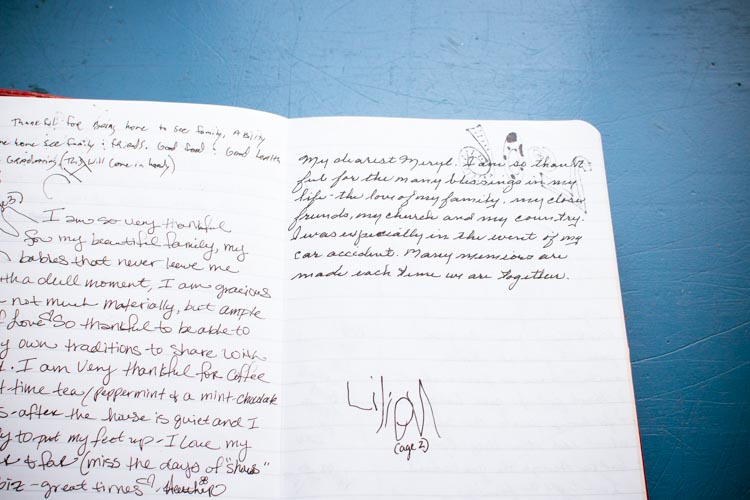 Thankful for being home to see family, Ability
home see family & friends. Good food & Good health
Graduating (This will come in handy)
I am so very thankful
for my beautiful family, my
babies that never leave me
a dull moment, I am gracious
not much materially, but ample
love So thankful to be able to
own traditions to share with
. I am very thankful for coffee
time tea/peppermint & a mint-chocolate
s-after the house is quiet and I
to put my feet up-I love my
& far (miss the days of "
biz-great times
My dearest Meryl. I am so thank
ful for the many blessings in my
life-the love of my family, my close
friends, my church and my country.
I was especially in the event of my
car accident. Many memories are
made each time we are together.
Lilian
(age 2)